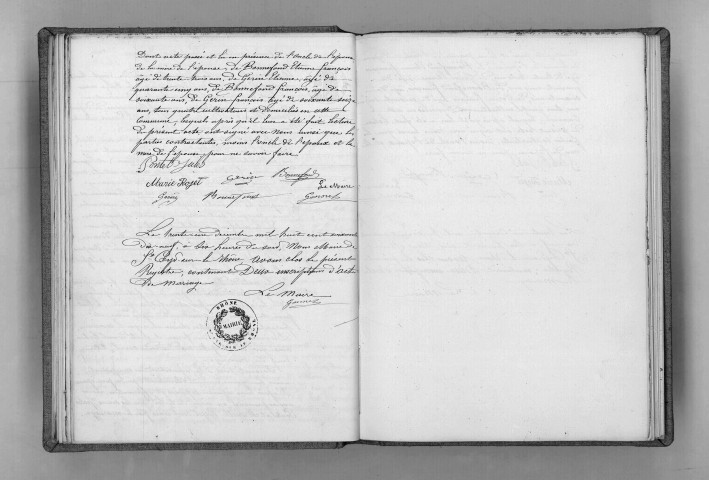 Dont acte passé et lu en présence de l'oncle de l'époux
de la mère de l'épouse, de Bonnefond Etienne François
âgé de trente trois ans, de Gerin Etienne, âgé de
quarante cinq ans, de Bonnefond François, âgé de
soixante ans, de Gerin François âgé de soixante seize
ans, tous quatre cultivateurs et domiciliés en cette
Commune, lesquels après qu'il leur a été fait lecture
du présent acte ont signé avec Nous ainsi que les
parties contractantes, moins l'oncle de l'époux et la
mère de l'épouse pour ne savoir faire.
Marie Rozet Gerin Bonnefond
Le Maire
Gerin Bonnefond
Le trente un décembre mil huit cent
dix neuf, à heures du soir, Nous Maire de
St Cyr sur le Rhône, avons clos le présent
Registre, contenant Deux inscriptions d'acte
de mariage.
Le Maire
RHÔNE
MAIRIE
SUR LE RHONE